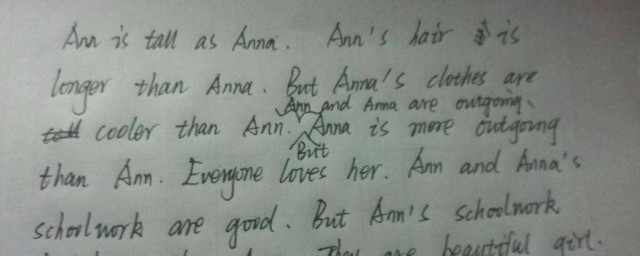 Ann is tall as Anna. Ann's hair is
longer than Anna. But Anna's clothes are
Ann and Anna are outgoing.
cooler than Ann. Anna is more outgoing
But
than Ann. Everyone loves her. Ann and Anna's
schoolwork are good. But Ann's schoolwork
They are beautiful girl.